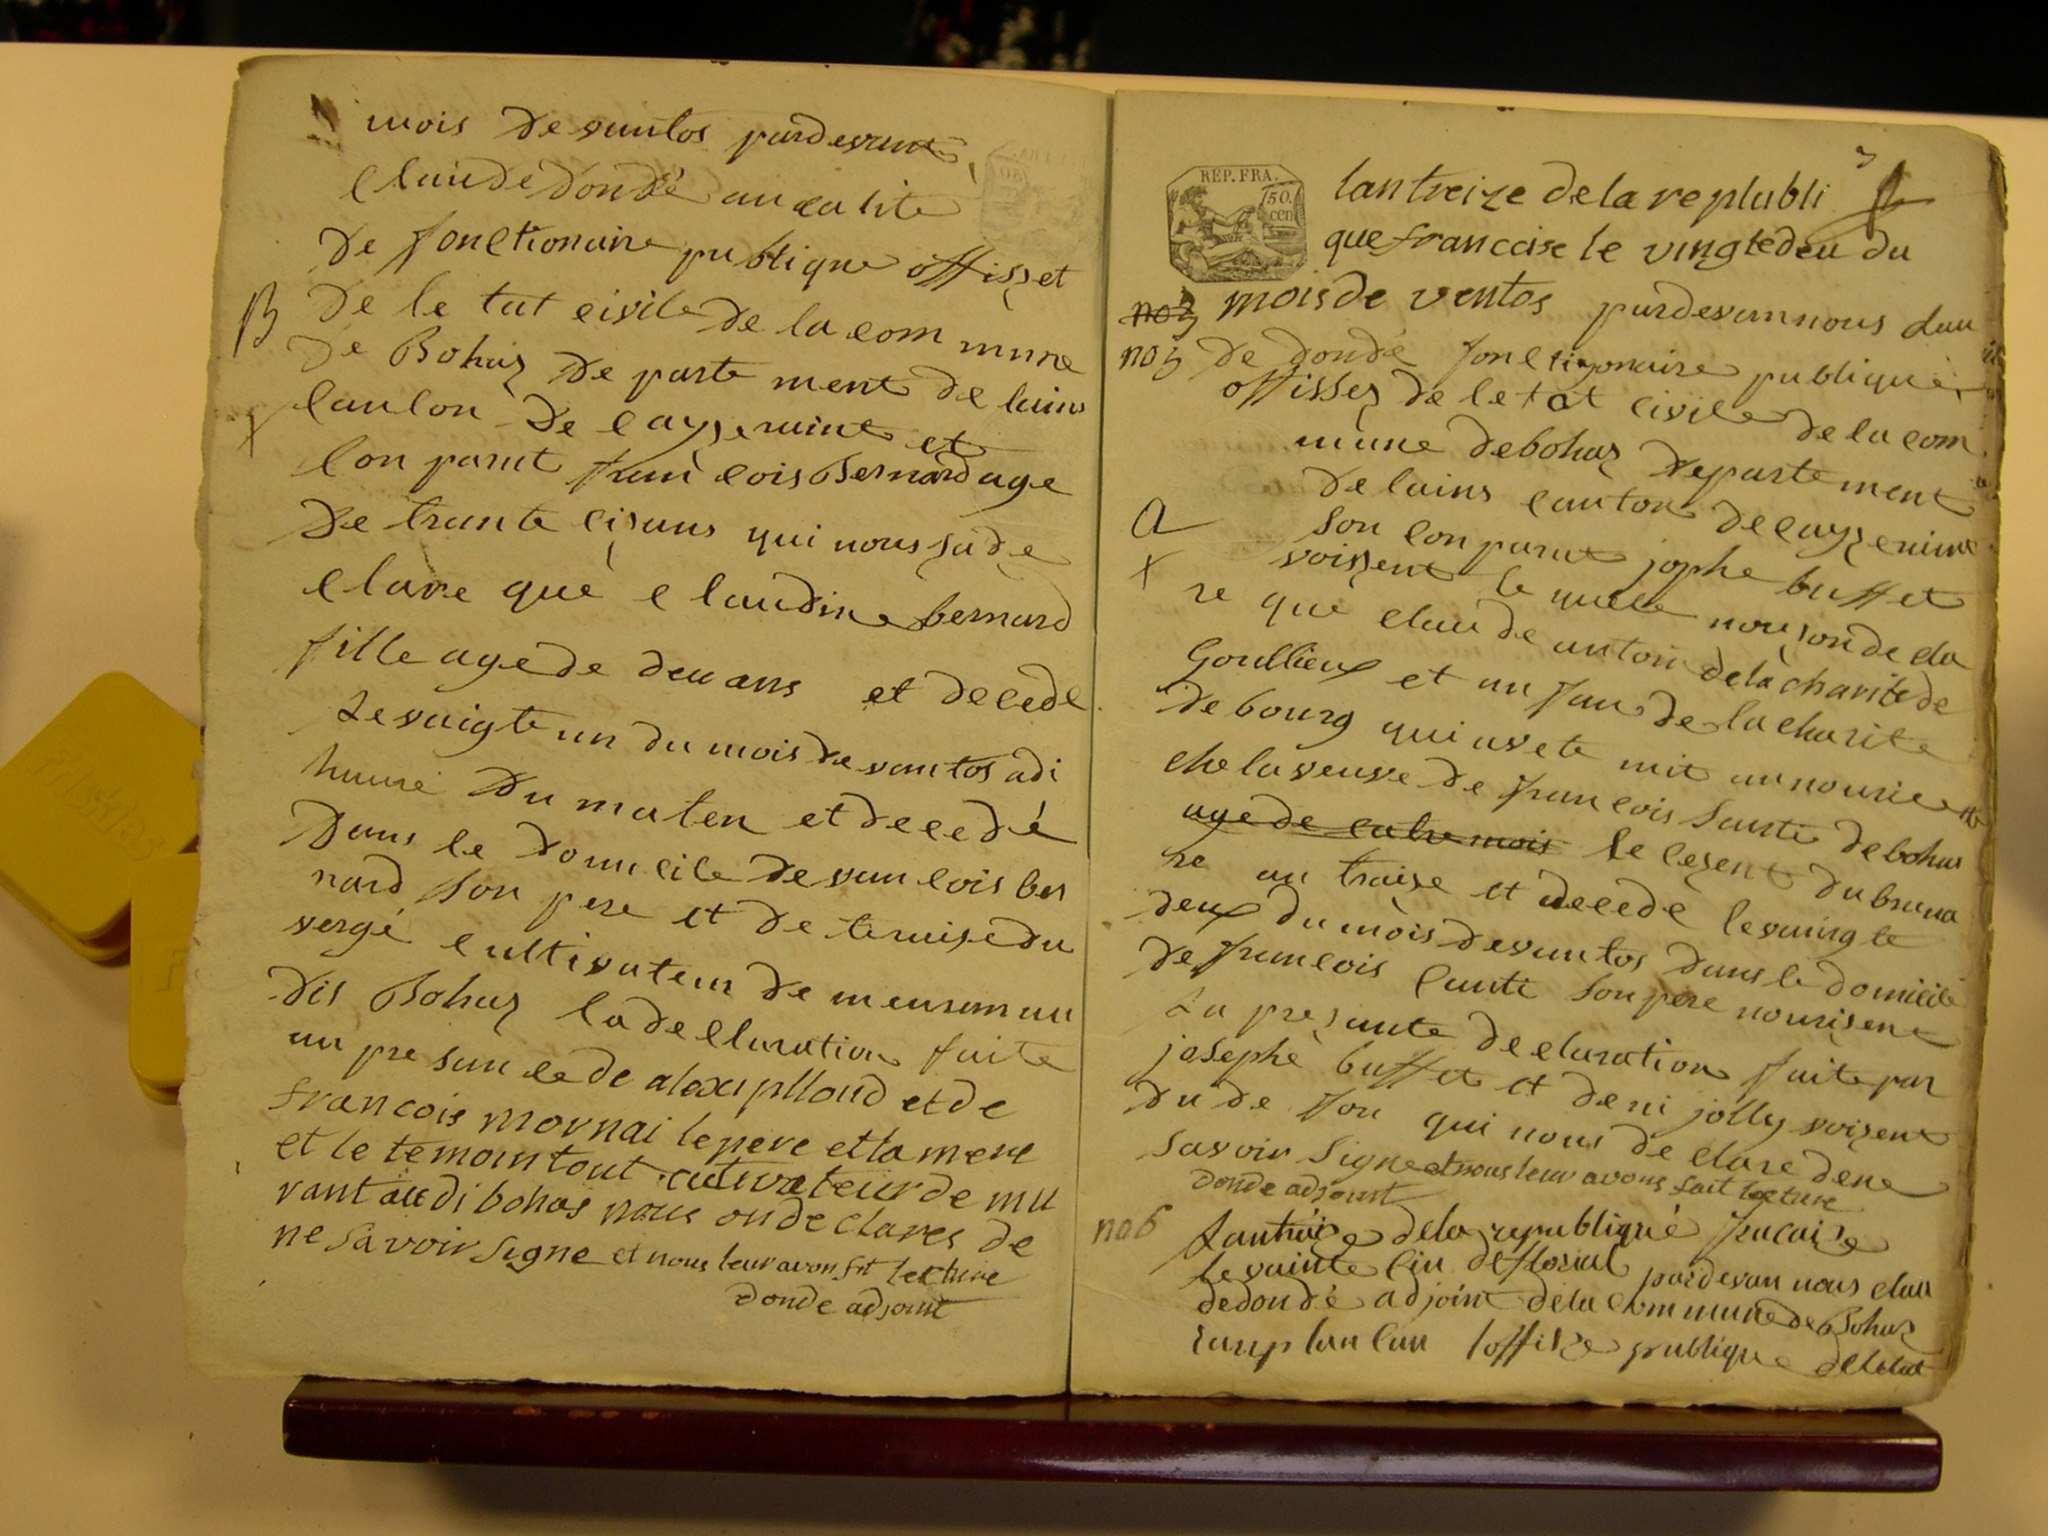 mois de vantos pardevant
Claude dondé au calité
de fonctionaire publique offisset
B de le tat civile de la com mune
de Bohaz de parte ment de lains
X canlon de cayzeraint et
Con parut francois Bernard age
de trante cisans qui nous ja de
clare que claudine bernard
fille agede deu ans et decede
Le vaigte un du mois de vantos adi
heure du maten et decedé
dans le domicile de vancois ber
nard son pere et de
vergé cultivateur de meurant au
dis Bohaz la declaration faite
au pre sance de alexi plloud et de
francois mornai le pere et la mere
et le temoin tout cutivateur de mu
rant au di bohas nous on de clares de
ne savoir signe et nous leur avon fit lecture
donde adjoint
3
REP. FRA.
50.
cen
lantreize de la replubli
que francaise le vingtedeu du
no3 mois de ventos pardevannous clau
no5 de dondé fonctigonaire publique
offisses de letat civile de la com
mune debohaz departement
de lains canton decayzerime
a son con parut jophe buffet
X voissent le quelle nou son de cla
re que claude antoin dela charite de
Goullieux et un fan de la charite
de bourg qui avete mit au nourice
che la veuve de francois Santi de bohas
age de catre mois le cesent du bruma
re an traise et decedé le vaingte
deux du mois devantos dans le domicile
de francois Canti son pere nourisent
La presante declaration faite par
josephe buffet et de ni jolly voisent
du de fon qui nous de clare dene
savoir signe et nous leur avons fait lecture
donde adjoint
no6 Lantraize dela republiqué francaise
le vainte cin defloral pardevan nous clau
dedondé adjoint dela commune de Bohaz
ranplanlan loffise publique de letat